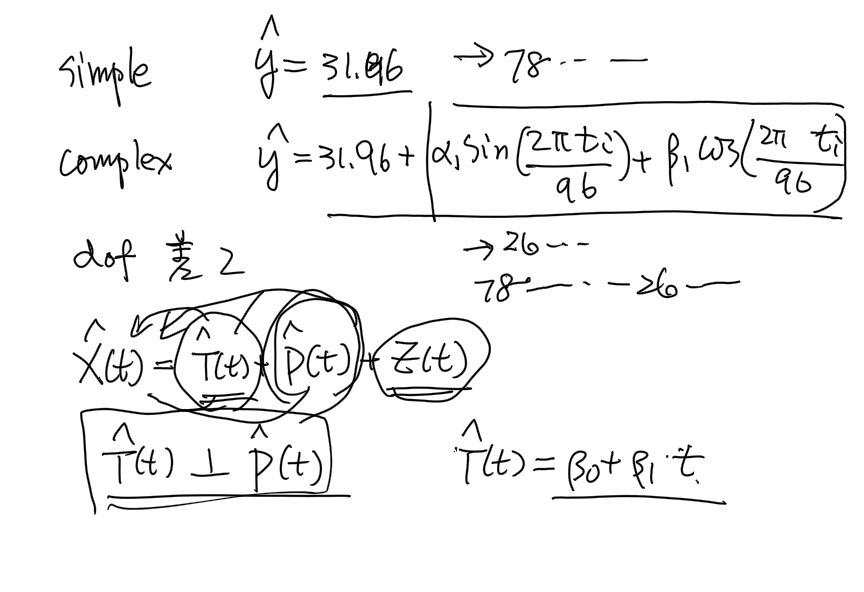 simple ŷ = 31.96 → 78... —
complex ŷ = 31.96 + α₁ sin(2πtᵢ/96) + β₁ cos(2π tᵢ/96)
dof 差 2 → 26...
78—...—26—
X̂(t) = T̂(t) + P̂(t) + Z(t)
T̂(t) ⊥ P̂(t) T̂(t) = β₀ + β₁ · t.